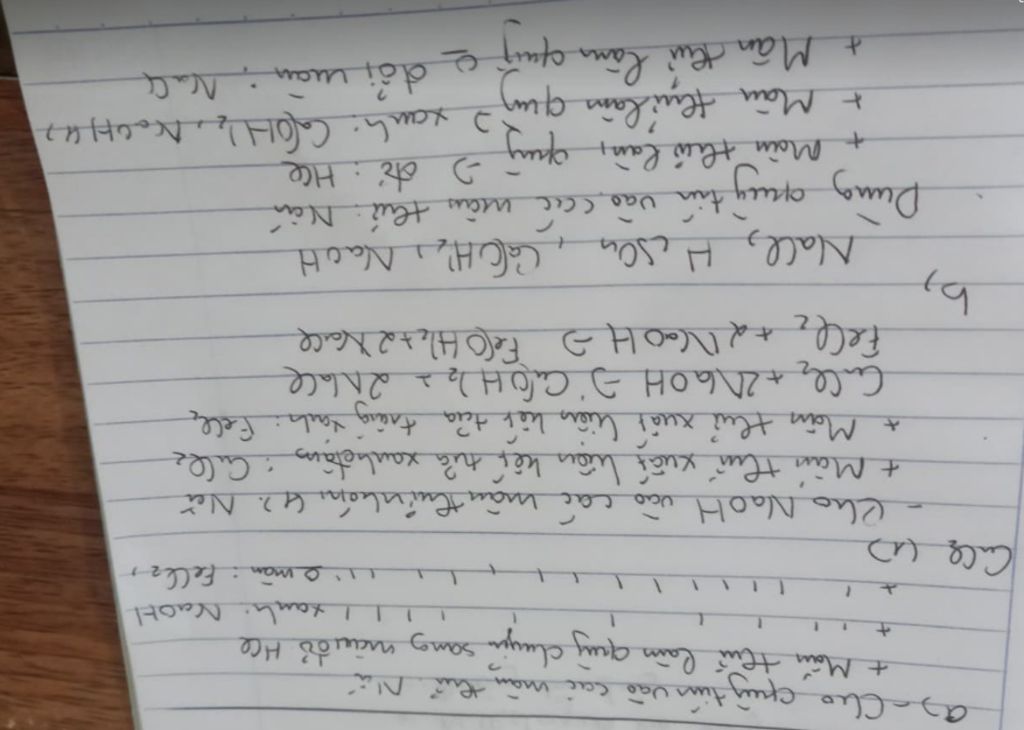 a) - Cho quỳ tím vào các mẫu thử. Nếu
+ Mẫu thử làm quỳ chuyển sang màu đỏ HCl
+ ' ' ' ' ' ' ' ' xanh: NaOH
+ ' ' ' ' ' ' ' ' ' ' ' 0 màu: FeCl2,
CuCl2 (1)
- Cho NaOH vào các mẫu thử nhóm (1). Nếu
+ Mẫu thử xuất hiện kết tủa xanh : CuCl2
+ Mẫu thử xuất hiện kết tủa trắng xanh: FeCl2
CuCl2 + 2NaOH → Cu(OH)2 + 2NaCl
FeCl2 + 2NaOH → Fe(OH)2 + 2NaCl
b,
NaCl, H2SO4, Ca(OH)2, NaOH
Dùng quỳ tím vào các mẫu thử. Nếu
+ Mẫu thử làm quỳ → đỏ: HCl
+ Mẫu thử làm quỳ → xanh: Ca(OH)2, NaOH (1)
+ Mẫu thử làm quỳ 0 đổi màu: NaCl